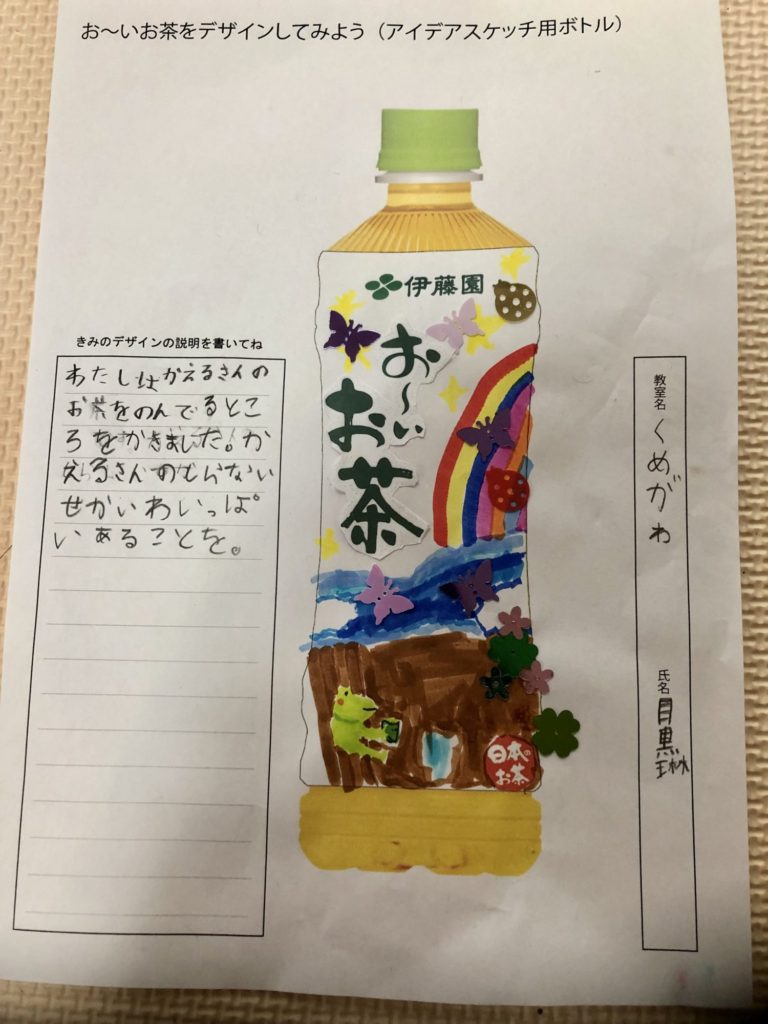 お〜いお茶をデザインしてみよう（アイデアスケッチ用ボトル）
伊藤園
お〜い
お茶
日本の
お茶
きみのデザインの説明を書いてね
わたしはかえるさんの
お茶をのんでるとこ
ろをかきました。か
えるさんのしらない
せかいわいっぱ
いあることを。
教室名
くめがわ
氏名
目黒琳